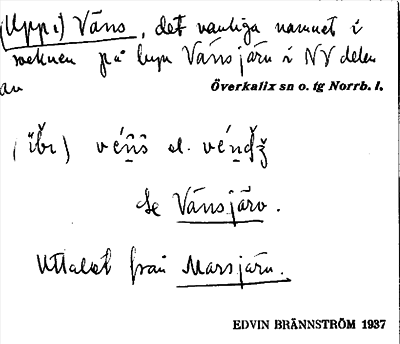 (Uppi) Väns, det vanliga namnet i
socknen på byn Vänsjärv i NV delen
av Överkalix sn o. tg Norrb. l.
(ìbi) véns el.
Se Vänsjärv.
Uttalat från Marsjärv.
EDVIN BRÄNNSTRÖM 1937